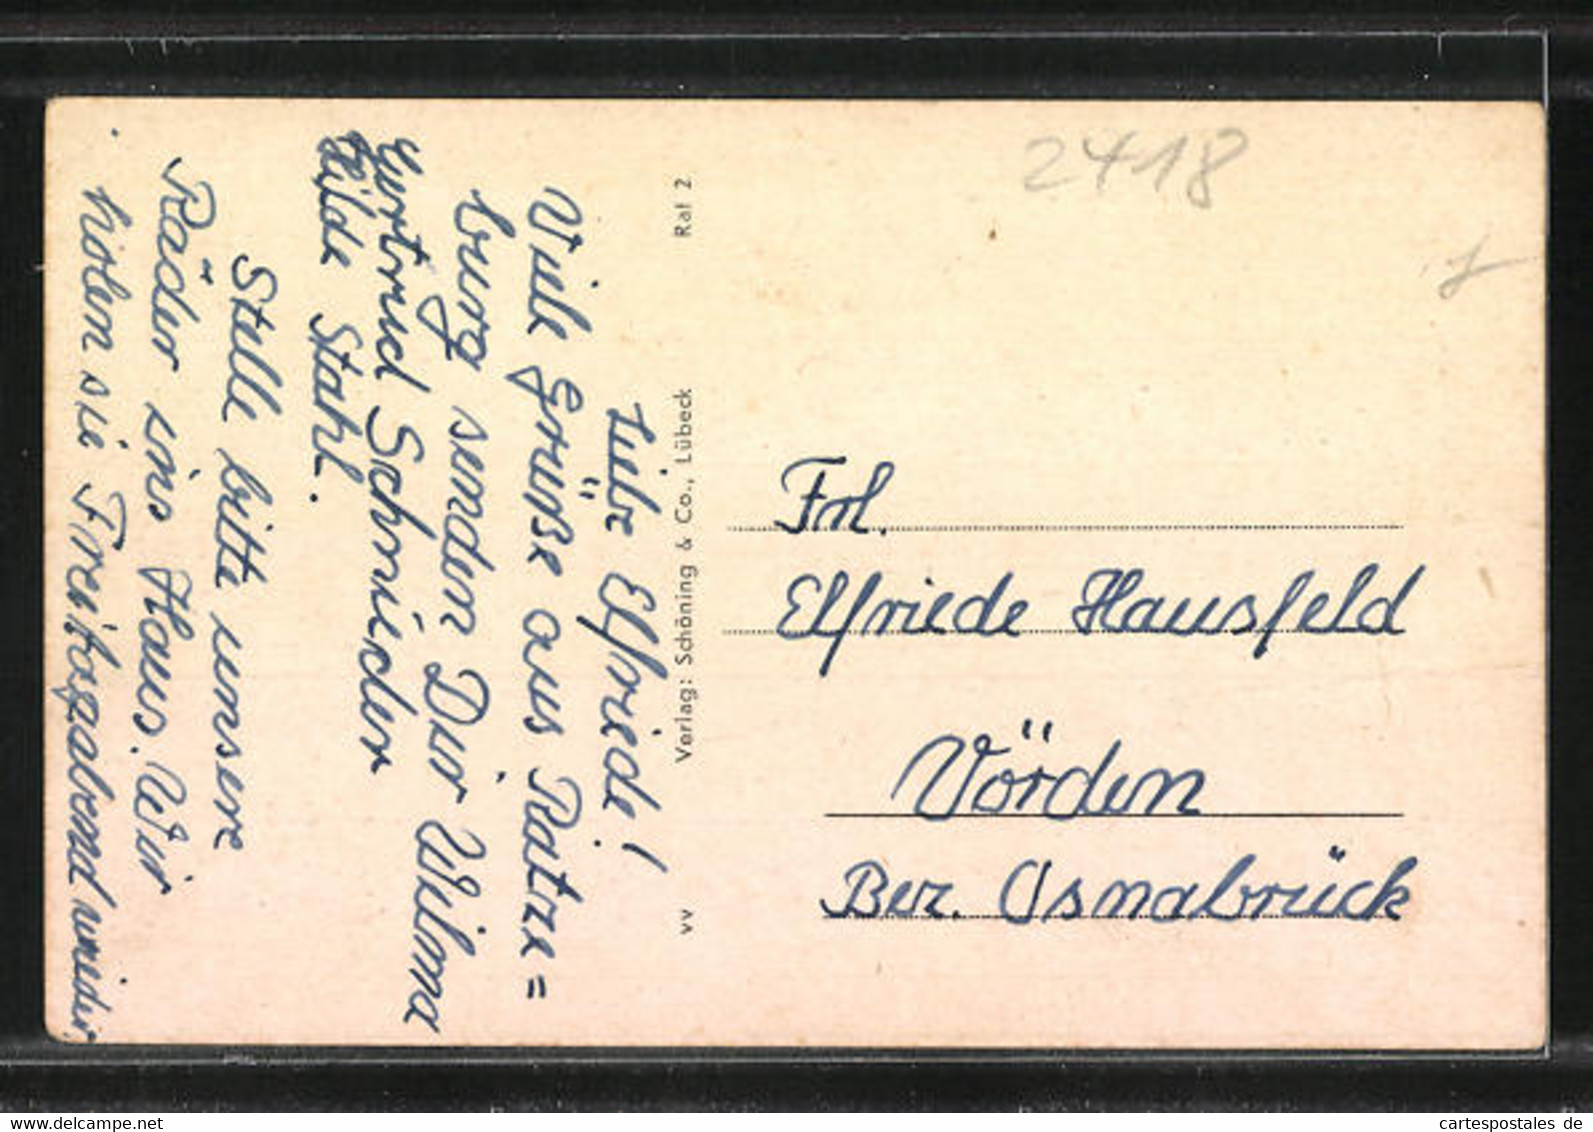 Liebe Elfriede!
Viele Grüße aus Ratze=
burg senden Dir Wilma
Gertrud Schnieder
Hilde Stahl.
Stelle bitte unsere
Räder ins Haus. Wir
holen sie Freitagabend wieder.
Rat 2
Verlag: Schöning & Co., Lübeck
vv
2418
Frl.
Elfriede Hausfeld
Vörden
Bez. Osnabrück
cartespostales de
www.delcampe.net